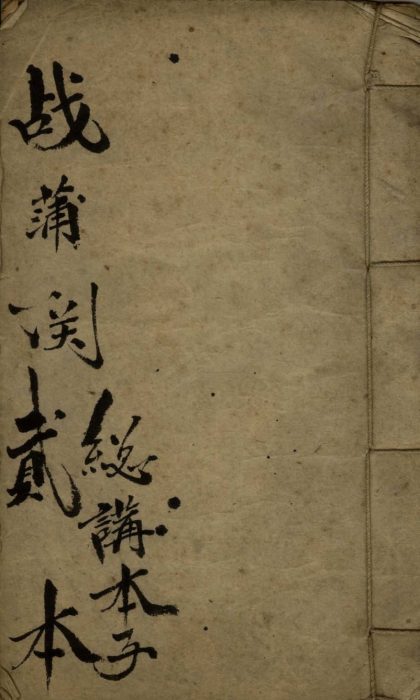 战蒲関貳本
総講本子